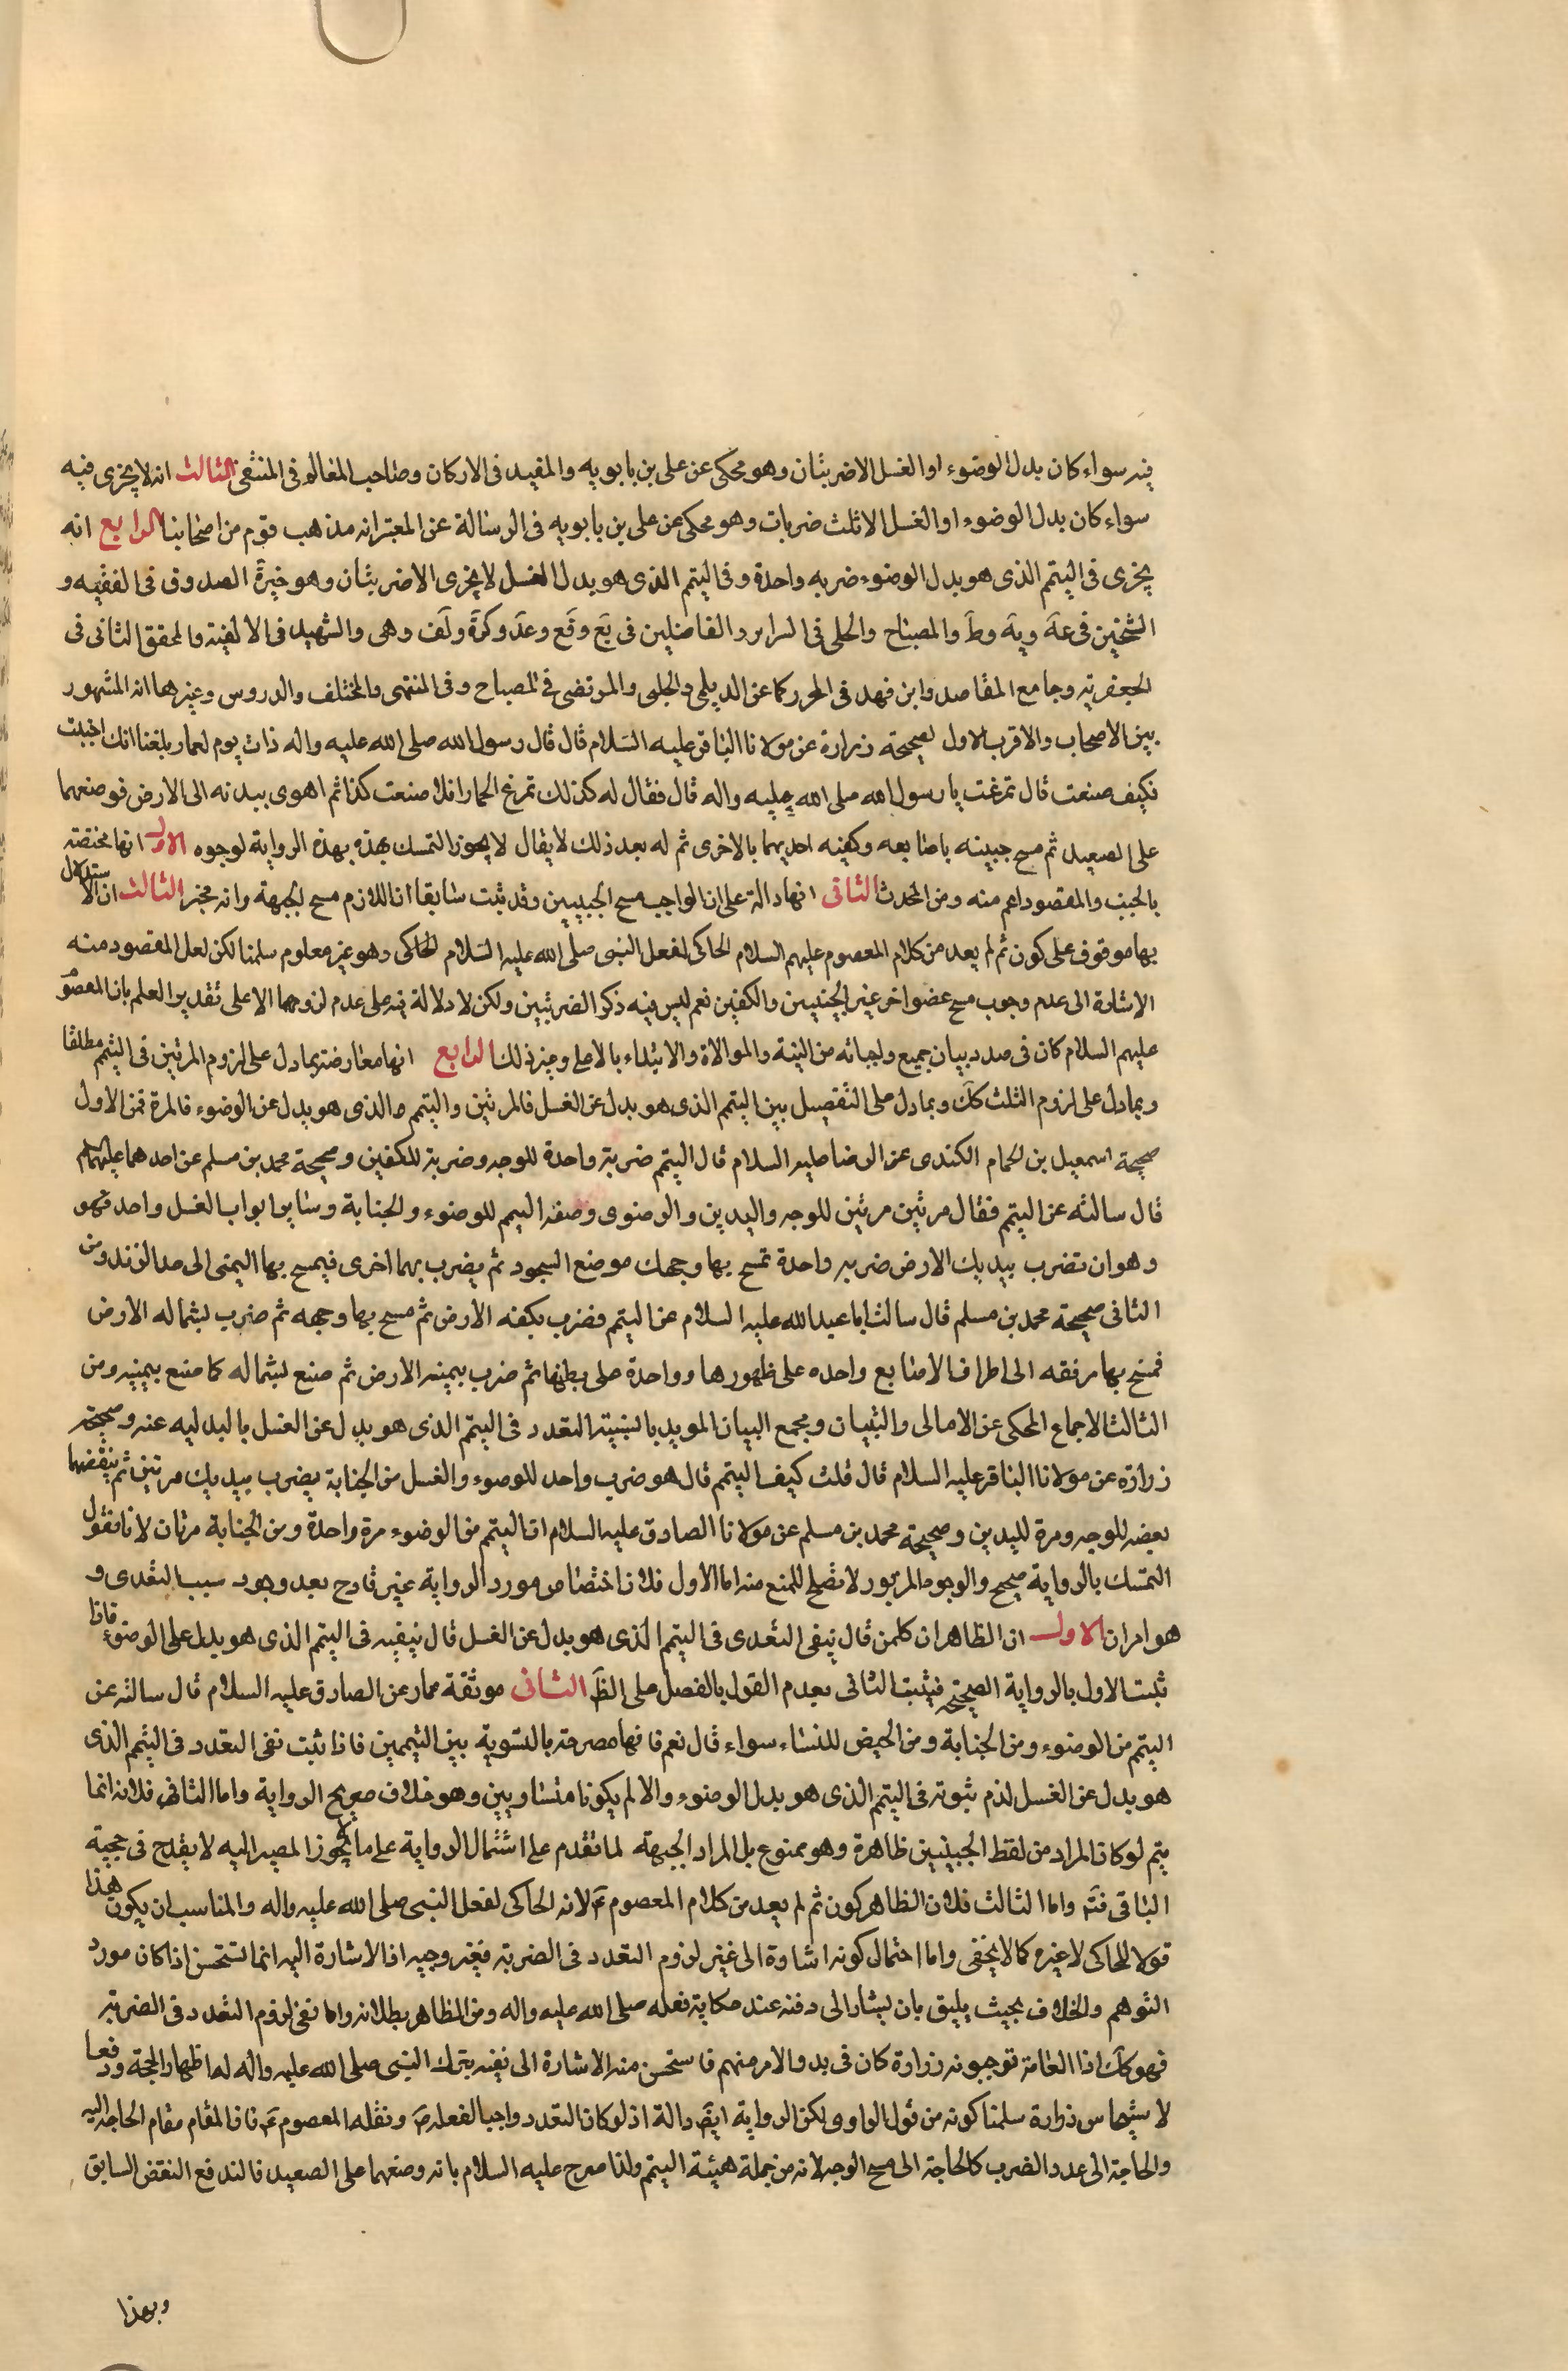 فيه سواء كان بدل الوضوء او الغسل الا ضربتان وهو محكى عن على بن بابويه والمفيد فى الاركان وصاحب المعالم فى المنتقى الثالث انه لا يجزى فيه
سواء كان بدل الوضوء او الغسل الا ثلث ضربات وهو محكى عن على بن بابويه فى الرسالة عن المعتبر انه مذهب قوم من اصحابنا الرابع انه
يجزى فى التيمم الذى هو بدل الوضوء ضربه واحدة وفى التيمم الذى هو بدل الغسل لا يجزى الا ضربتان وهو خيرة الصدوق فى الفقيه و
الشيخين فى عة وية وط والمصباح والحلى فى السراير والفاضلين فى يع وفع وعد وكرة ولف وهى والشهيد فى الالفية والمحقق الثانى فى
الجعفرية وجامع المقاصد وابن فهد فى المحرر كما عن الديلمى والحلبى والمرتضى فى المصباح وفى المنتهى والمختلف والدروس وغيرها انه المشهور
بين الاصحاب والاقرب الاول لصحيحة زرارة عن مولانا الباقر عليه السلام قال قال رسول الله صلى الله عليه واله ذات يوم لعمار بلغنا انك اجنبت
فكيف صنعت قال تمرغت يا رسول الله صلى الله عليه واله قال فقال له كذلك تمرغ الحمار افلا صنعت كذا ثم اهوى بيديه الى الارض فوضعهما
على الصعيد ثم مسح جبينه باصابعه وكفيه احديهما بالاخرى ثم له بعد ذلك لا يقال لا يجوز التمسك بهذه بهذه الرواية لوجوه الاول انها مختصة
بالجنب والمقصود اعم منه ومن المحدث الثانى انها دالة على ان الواجب مسح الجبينين وقد ثبت سابقا ان اللازم مسح الجبهة وانه مجز الثالث ان الاستدلال
بها موقوف على كون ثم لم يعد من كلام المعصوم عليهم السلام الحاكى لفعل النبى صلى الله عليه السلام الحاكى وهو غير معلوم سلمنا لكن لعل المقصود منه
الاشارة الى عدم وجوب مسح عضو اخر غير الجبينين والكفين نعم ليس فيه ذكر الضربتين ولكن لا دلالة فيه على عدم لزومهما الا على تقدير العلم بان المعصوم
عليهم السلام كان فى صدد بيان جميع واجباته من النية والموالاة والابتداء بالاعلى وغير ذلك الرابع انها معارضة بما دل على لزوم المرتين فى التيمم مطلقا
وبما دل على لزوم الثلث كك وبما دل على التفصيل بين التيمم الذى هو بدل عن الغسل فالمرتين والتيمم والذى هو بدل عن الوضوء فالمرة فمن الاول
صحيحة اسمعيل بن الحمام الكندى عن الرضا عليه السلام قال التيمم ضربة واحدة للوجه وضربة للكفين وصحيحة محمد بن مسلم عن احدهما عليهما السلام
قال سالته عن التيمم فقال مرتين مرتين للوجه واليدين والرضوى وصفة التيمم للوضوء والجنابة وساير ابواب الغسل واحد فهو
وهو ان تضرب بيديك الارض ضربه واحدة تمسح بها وجهك موضع السجود ثم يضرب بهما اخرى فيمسح بها اليمنى الى حد الزند ومن
الثانى صحيحة محمد بن مسلم قال سالت ابا عبد الله عليه السلام عن التيمم فضرب بكفه الارض ثم مسح بها وجهه ثم ضرب بشماله الارض
فمسح بها مرفقه الى اطراف الاصابع واحده على ظهورها وواحدة على بطنها ثم ضرب بيمينه الارض ثم صنع بشماله كما صنع بيمينه ومن
الثالث الاجماع المحكى عن الامالى والتبيان ومجمع البيان المويد بالنسبة التعدد فى التيمم الذى هو بدل عن الغسل بالبدليه عنه وصحيحة
زرارة عن مولانا الباقر عليه السلام قال قلت كيف التيمم قال هو ضرب واحد للوضوء والغسل من الجنابة يضرب بيديك مرتين ثم ينفضهما
نفضه للوجه ومرة لليدين وصحيحة محمد بن مسلم عن مولانا الصادق عليه السلام ان التيمم من الوضوء مرة واحدة ومن الجنابة مرتان لانا نقول
التمسك بالرواية صحيح والوجوه المزبور لا تصلح للمنع منه اما الاول فلان اختصاص مورد الرواية غير قادح بعد وجود سبب التعدى و
هو امران الاول ان الظاهر ان كلمن قال بنفى التعدى فى التيمم الذى هو بدل عن الغسل قال بنفيه فى التيمم الذى هو بدل على الوضوء فاذا
ثبت الاول بالرواية الصحيحة فيثبت الثانى بعدم القول بالفصل على الظ الثانى موثقة عمار عن الصادق عليه السلام قال سالته عن
التيمم من الوضوء ومن الجنابة ومن الحيض للنساء سواء قال نعم فانها مصرحة بالتسوية بين التيممين فاذا ثبت نفى التعدد فى التيمم الذى
هو بدل عن الغسل لزم ثبوته فى التيمم الذى هو بدل الوضوء والا لم يكونا متساويين وهو خلاف صريح الرواية واما الثانى فلانه انما
يتم لو كان المراد من لفظ الجبينين ظاهرة وهو ممنوع بل المراد الجبهة لما تقدم على اشتمال الرواية على ما لا يجوز المصير اليه لا يقدح فى حجية
الباقى فتم واما الثالث فلان الظاهر كون ثم لم يعد من كلام المعصوم ع لانه الحاكى لفعل النبى صلى الله عليه واله والمناسب ان يكون هذا
قولا للحاكى لا غيره كما لا يخفى واما احتمال كونه اشارة الى غير لزوم التعدد فى الضربة فغير وجيه اذ الاشارة اليه انما تستحسن اذا كان مورد
التوهم والخلاف بحيث يليق بان يشار الى دفعه عند حكاية فعله صلى الله عليه واله ومن الظاهر بطلانه واما نفى لزوم التعدد فى الضربة
فهو كك اذ العامة توجبونه زرارة كان فى بدو الامر منهم فاستحسن منه الاشارة الى نفيه بترك النبى صلى الله عليه واله له اظهار الحجة ودفعا
لا شبها س زرارة سلمنا كونه من قول الراوى لكن الرواية ايض دالة اذ لو كان التعدد واجبا لفعله ص ونقله المعصوم ع فان المقام مقام الحاجة اليه
والحاجة الى عدد الضرب كالحاجة الى مسح الوجه لانه من جملة هيئة التيمم ولذا صرح عليه السلام بانه وضعهما على الصعيد فالندفع النقض السابق
وبهذا